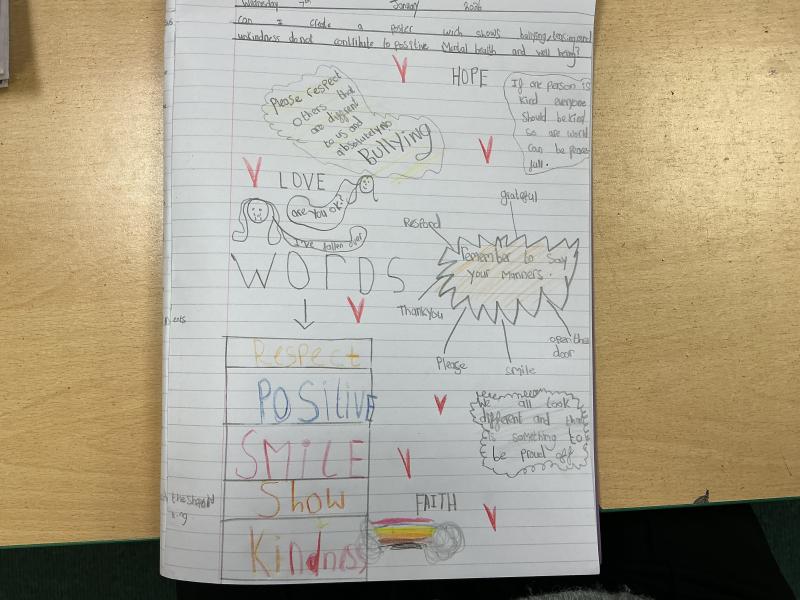 Wednesday 7th January 2026
can I create a poster wich shows bullying, teasing and
unkindness do not contribute to positive Mental health and well being?
HOPE
Please respect
others that
are diffrent
to us and
absolutely no
Bullying
If one person is
kind everyone
should be kind
so are world
can be peace
full.
LOVE
are you ok?
I've fallen over
WORDS
grateful
Respond
remember to say
your manners.
Thankyou
Please
smile
open the
door
Respect
Positive
SMILE
Show
Kindness
We all look
different and that
is something to
be proud off
FAITH